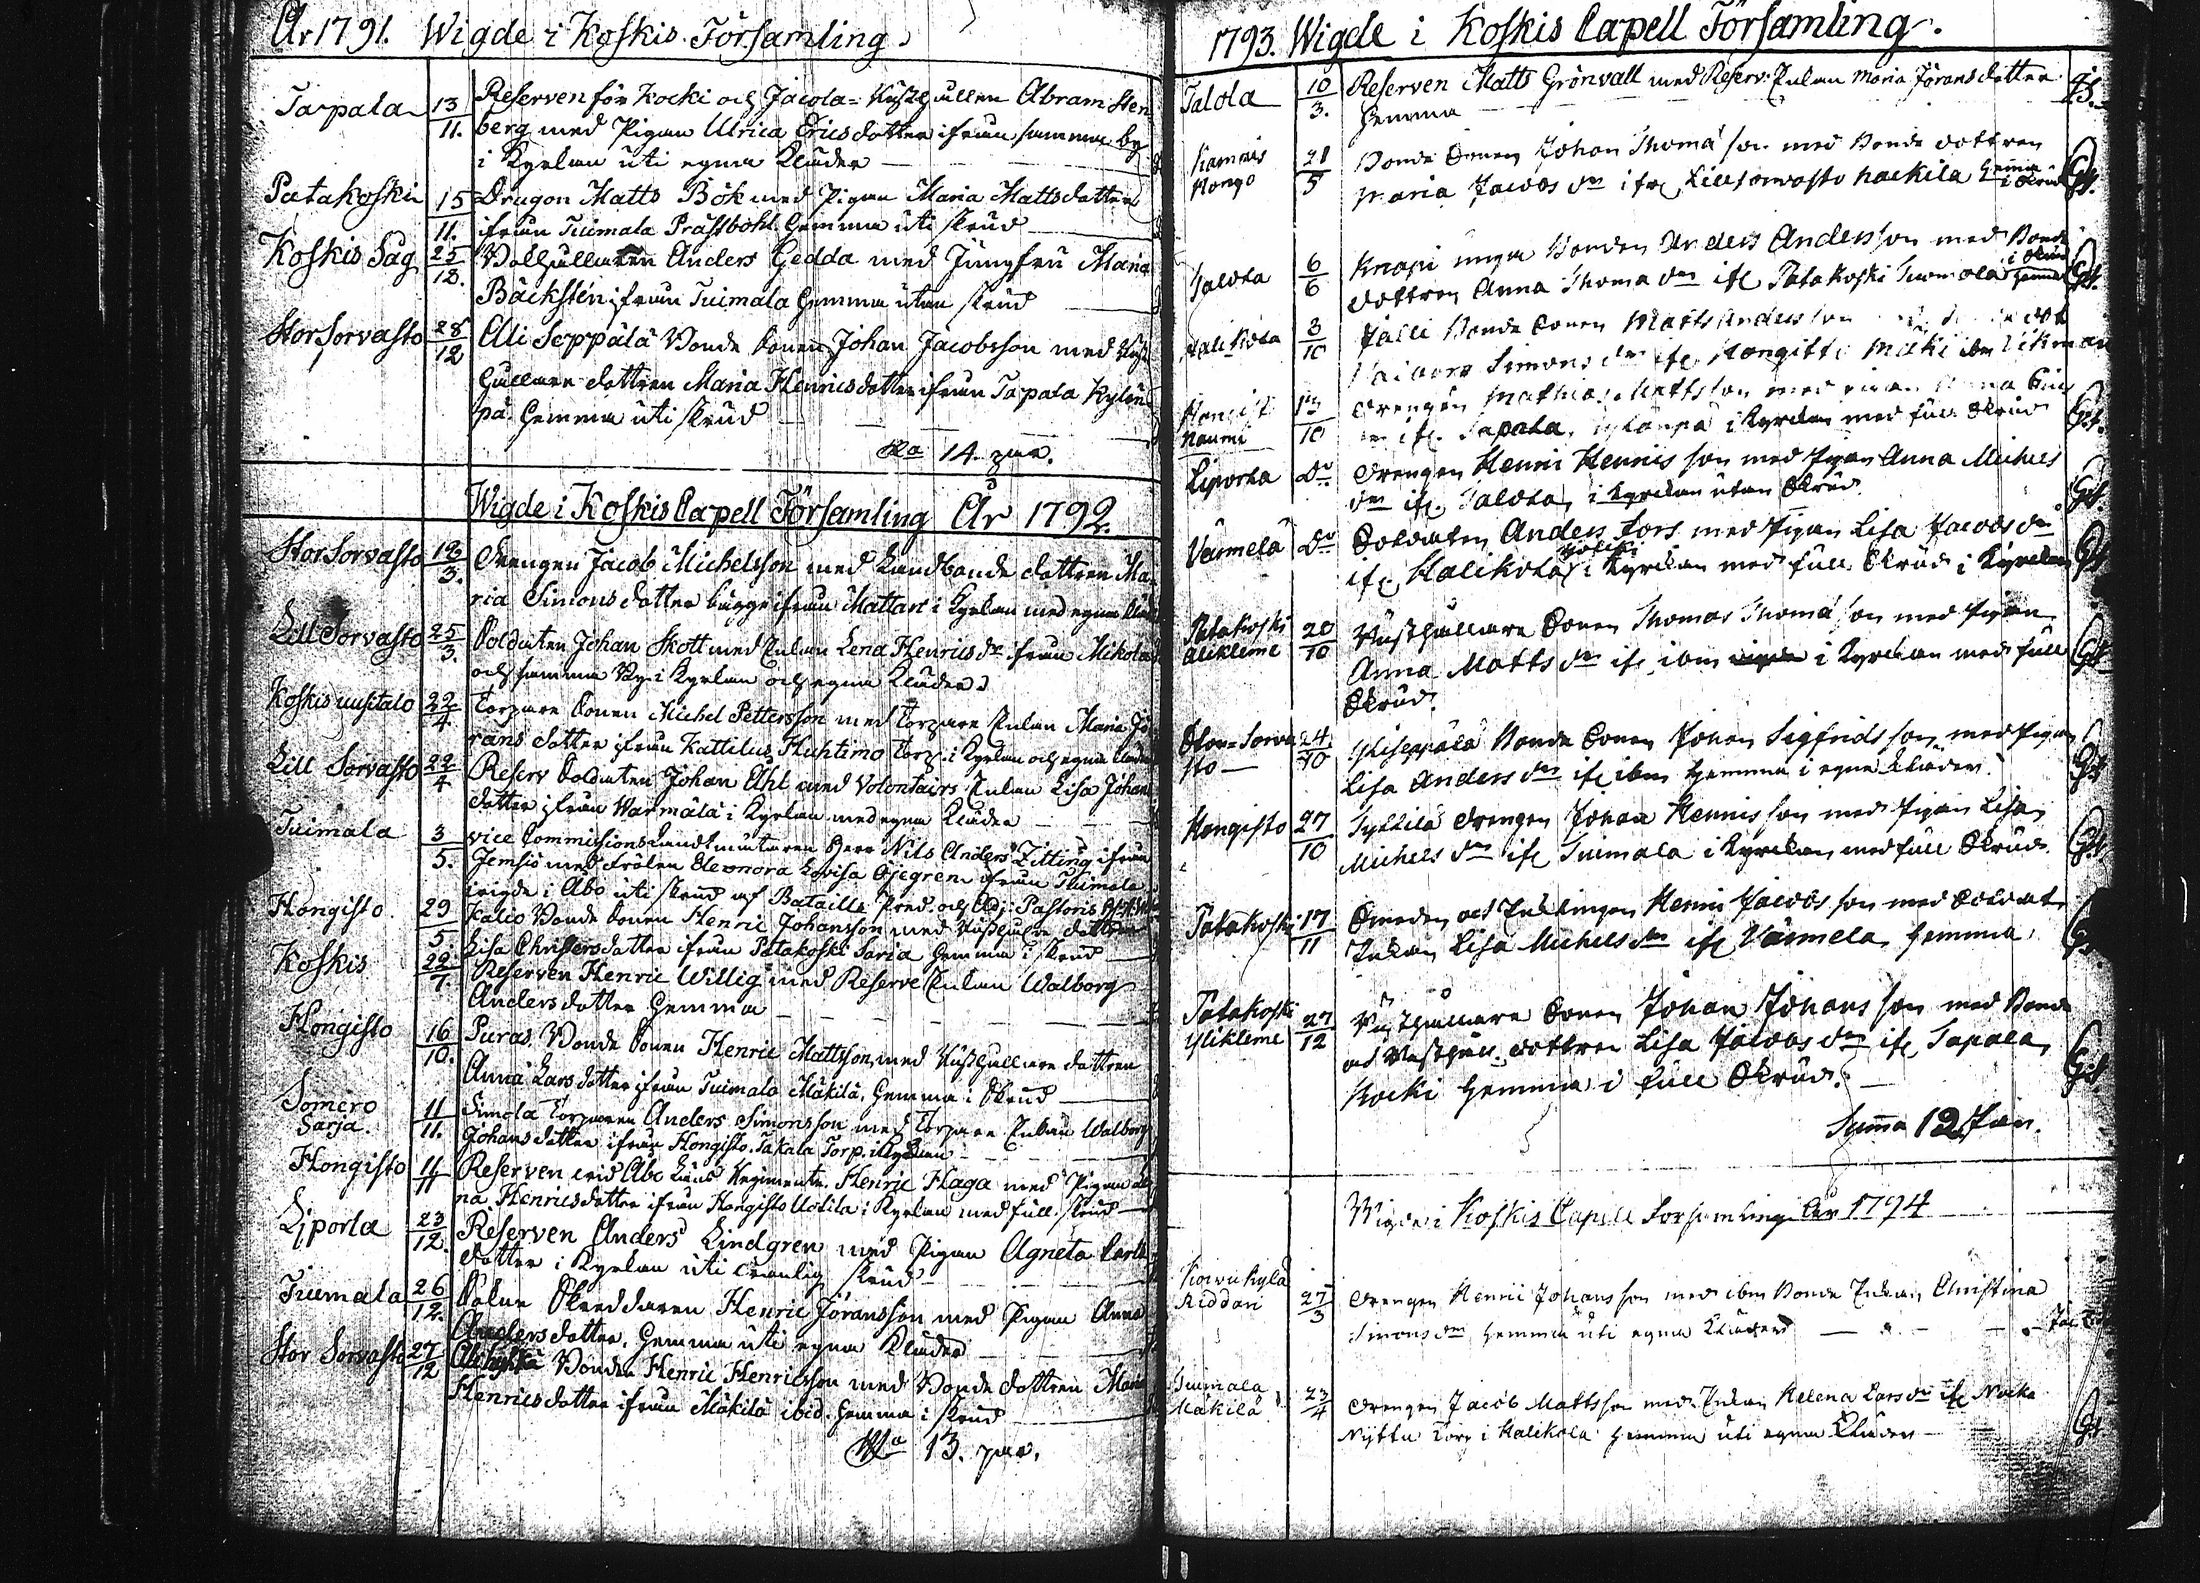 År 1791. Wigde i Koskis Församling
Tapala 13/11. Reserven för Kocki och Jacola= Rusthållen Abram Sten
berg med Pigan Ulrica Ericsdotter ifrån samma by
i Kyrkan uti egna Kläder
Patakoski 15/11. Dragon Matts Bök med Pigan Maria Mattsdotter
ifrån Tuimala Prästbohl hemma uti skrud
Koskis Såg 25/12. Anders Gedda med Jungfru Maria
Bäckstén ifrån Tuimala hemma utan skrud
Stor Sorvasto 28/12 Ali Seppälä Bonde Sonen Johan Jacobsson med Rust
hållare dottren Maria Henricsdotter ifrån Tapala Kylän
pä hemma uti skrud
Sa 14. par.
Wigde i Koskis Capell Församling År 1792.
Stor Sorvasto 12/3. Drengen Jacob Michelsson med Landbonde dottren Ma
ria Simonsdotter bägge ifrån Mattari i Kyrkan med egna Kläd
Lill Sorvasto 25/3. Soldaten Johan Skott med Enkan Lena Henrics dr ifrån Mikola
och samma By i Kyrkan och egna Kläder
Koskis uusitalo 22/4 Torpare Sonen Michel Pettersson med Torpare Enkan Maria Jö
rans dotter ifrån Kattilus Huhtimo Torp i Kyrkan och egna Kläder
Lill Sorvasto 22/4 Reserv Soldaten Johan Ahl med Volontairs Enkan Lisa Johans
dotter ifrån Warmälä i Kyrkan med egna Kläder
Tuimala 3/5. vice Commissions Landtmätaren Herr Nils Anders Zitting ifrån
Jemsiö med Frölen Eleonora Lovisa Öjegren ifrån Tuimala
wigde i Åbo uti skrud af Bataills Pred. och Adj: Pastoris
Hongisto 29/5. Kalio Bonde Sonen Henric Johansson med Rusthållare dottren
Lisa Christersdotter ifrån Patakoski Saria hemma i skrud
Koskis 22/7. Reserven Henric Willig med Reserve Enkan Walborg
Anders dotter hemma
Hongisto 16/10. Puras Bonde Sonen Henric Mattsson med Rusthållare dottren
Anna Larsdotter ifrån Tuimala Mäkilä, hemma i Skrud
Somero
Sarja. 11/11. Simola Torparen Anders Simonsson med Torpare Enkan Walborg
Johansdotter ifrån Hongisto Takala Torp. i Kyrkan
Hongisto 11/11 Reserven wid Åbo Läns Regimente Henric Haga med Pigan An
na Henricsdotter ifrån Hongisto Uotila i Kyrkan med full skrud
Liporla 23/12. Reserven Anders Lindgren med Pigan Agneta Carls
dotter i Kyrkan uti wanlig skrud
Tuimala 26/12. Sokne Skreddaren Henric Jöransson med Pigan Anna
Andersdotter, hemma uti egna Kläder
Stor Sorvasto 27/12 Bonden Henric Henricsson med Bonde dottren Maria
Henricsdotter ifrån Mäkilä ibid. hemma i skrud
Sa 13. par.
1793. Wigde i Koskis Capell Församling.
Talola 10/3. Reserven Matts Grönvall med Reserv: Enkan Maria Jöransdotter
hemma
21/5 Bonde Sonen Johan Thomä son med Bonde dottren
Maria Jacobs dr ifr. Lillsorvasto hemma
i Skrud
Talola 6/6 Knapi unga Bonden Anders Andersson med Bonde
dottren Anna Thoma dr ifr Patakoski Tuomola hemma
i Skrud
Halikola 3/10 Jälli Bonde Sonen Matts Andersson
Simons dr ifr Hongisto Mäki
13/10 Drengen Mathias Mattsson med
ifr. Tapala, Kylänpä i Kyrkan med full Skrud
Liporla Do Drengen Henric Henrics son med Pigan Anna Michels
dr ifr. Talola, i Kyrkan utan Skrud
Värmelä Do Soldaten Anders Fors med Pigan Lisa Jacobs dr
ifr Halikola i Kyrkan med full Skrud i Kyrkan
Patakoski
Alikleme 20/10 Rusthållare Sonen Thomas Thomä son med Pigan
Anna Matts dr ifr ibm i Kyrkan med full
Skrud.
Stor=Sorva
sto 24/10 Yliseppälä Bonde Sonen Johan Sigfrids son med Pigan
Lisa Anders dr ifr ibm hemma i egna Kläder.
Hongisto 27/10 Sykkilä Drengen Johan Henrics son med Pigan Lisa
Michels dr ifr Tuimala i Kyrkan med full Skrud
Patakoski 17/11 Smeden och Enklingen Henric Jacobs son med Soldat
Enkan Lisa Michels dr ifr Värmela, hemma
Patakoski
Ylikleme 27/12 Rusthållare Sonen Johan Johans son med Bonde
och Rusthåll. dottren Lisa Jacobs dr ifr Tapala
Kocki hemma i full Skrud.
Summa 12 Par.
Wigde i Koskis Capell Församling År 1794
Koivukylä
Riddari 27/3 Drengen Henric Johans son med ibm Bonde Enkan Christina
Simons dr hemma uti egna Kläder
Tuimala
Mäkilä 23/4 Drengen Jacob Matts son med Enkan Helena Lars dr ifr
Torp i Halikola hemma uti egna Kläder